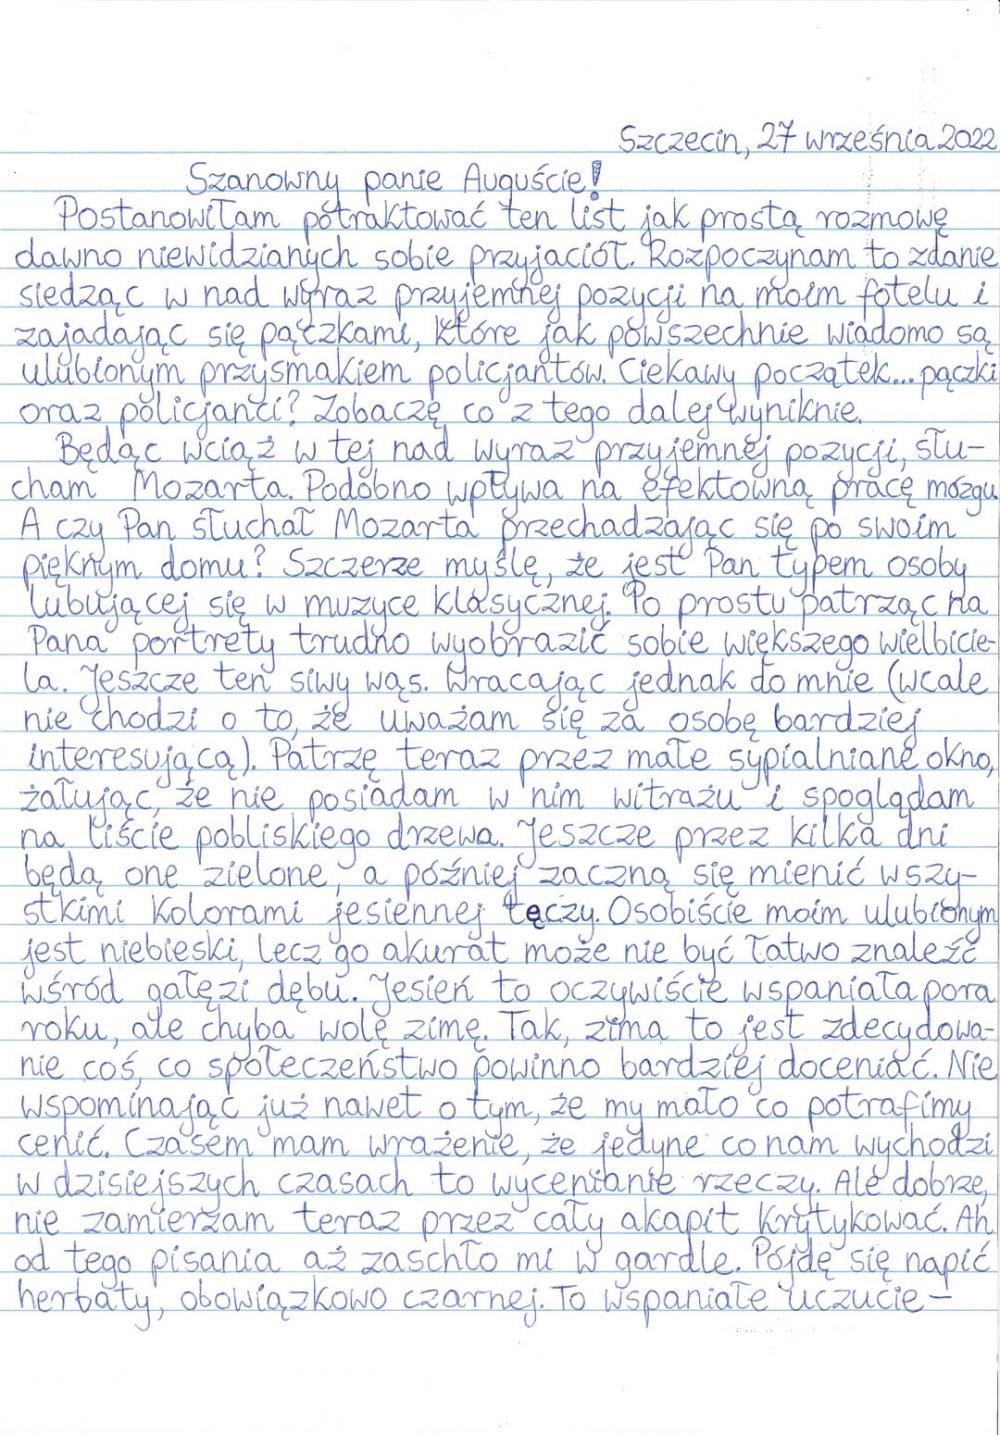 Szczecin, 27 września 2022
Szanowny panie Auguście!
Postanowiłam potraktować ten list jak prostą rozmowę
dawno niewidzianych sobie przyjaciół. Rozpoczynam to zdanie
siedząc w nad wyraz przyjemnej pozycji na moim fotelu i
zajadając się pączkami, które jak powszechnie wiadomo są
ulubionym przysmakiem policjantów. Ciekawy początek... pączki
oraz policjanci? Zobaczę co z tego dalej wyniknie.
Będąc wciąż w tej nad wyraz przyjemnej pozycji, słu-
cham Mozarta. Podobno wpływa na efektowną pracę mózgu.
A czy Pan słuchał Mozarta przechadzając się po swoim
pięknym domu? Szczerze myślę, że jest Pan typem osoby
lubującej się w muzyce klasycznej. Po prostu patrząc na
Pana portrety trudno wyobrazić sobie większego wielbicie-
la. Jeszcze ten siwy wąs. Wracając jednak do mnie (wcale
nie chodzi o to, że uważam się za osobę bardziej
interesującą). Patrzę teraz przez małe sypialniane okno,
żałując, że nie posiadam w nim witrażu i spoglądam
na liście pobliskiego drzewa. Jeszcze przez kilka dni
będą one zielone, a później zaczną się mienić wszy-
stkimi kolorami jesiennej tęczy. Osobiście moim ulubionym
jest niebieski, lecz go akurat może nie być łatwo znaleźć
wśród gałęzi dębu. Jesień to oczywiście wspaniała pora
roku, ale chyba wolę zimę. Tak, zima to jest zdecydowa-
nie coś, co społeczeństwo powinno bardziej doceniać. Nie
wspominając już nawet o tym, że my mało co potrafimy
cenić. Czasem mam wrażenie, że jedyne co nam wychodzi
w dzisiejszych czasach to wycenianie rzeczy. Ale dobrze,
nie zamierzam teraz przez cały akapit krytykować. Ah
od tego pisania aż zaschło mi w gardle. Pójdę się napić
herbaty, obowiązkowo czarnej. To wspaniałe uczucie –